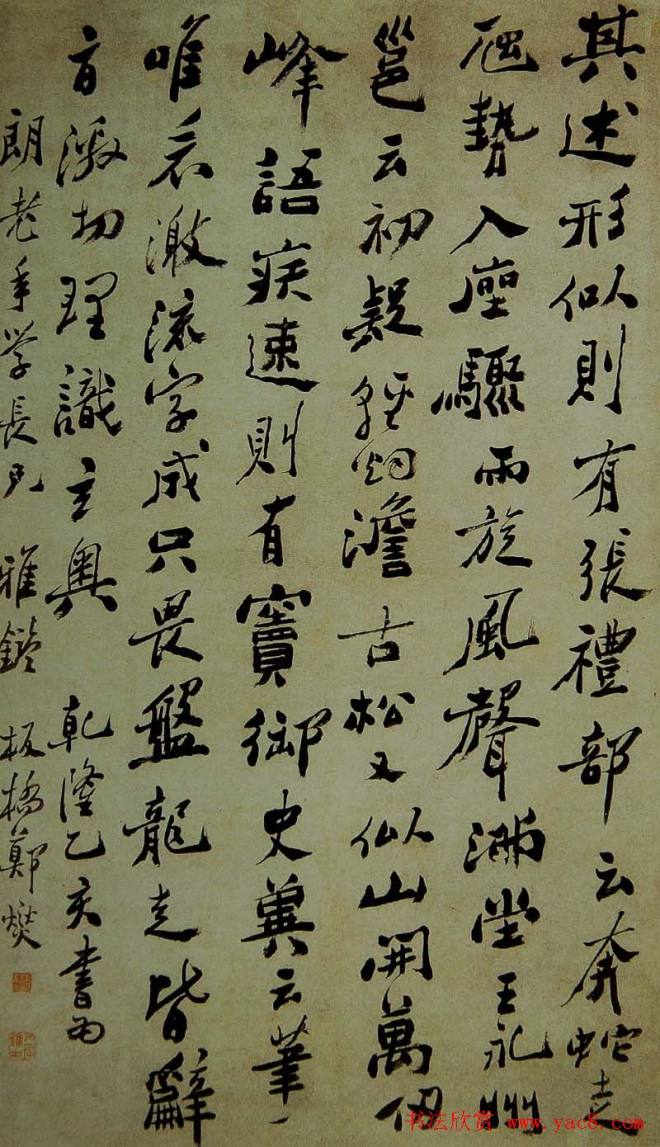 其述形似則有張禮部云奔蛇走
虺勢入座驟雨旋風聲滿堂王永州
邕云初疑輕烟澹古松又似山開萬仞
峰語疾速則有竇御史冀云筆一
唯看激流字成只畏盤龍走皆辭
旨激切理識玄奧 乾隆乙亥書為
朗老年学長兄 雅鑒 板橋鄭燮
书法欣赏 www.yac8.com